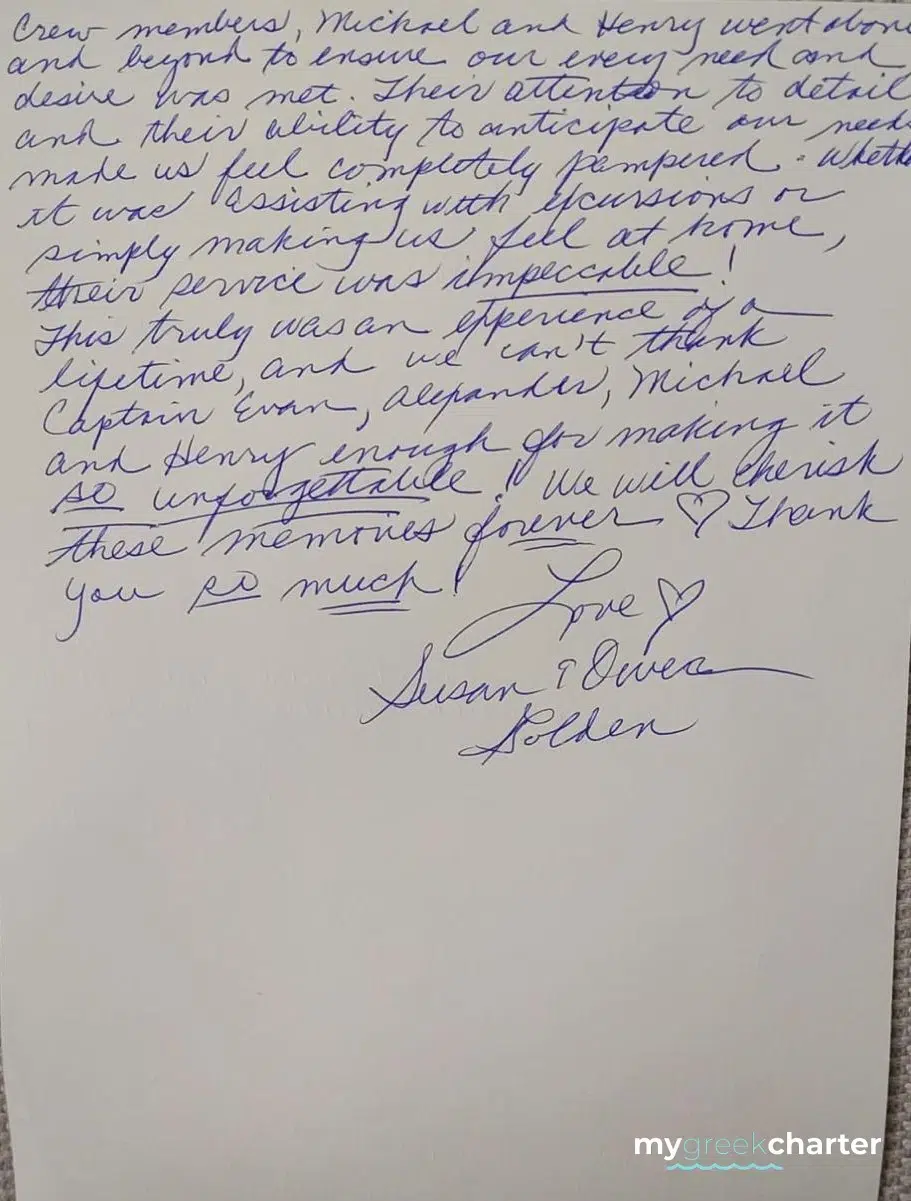 Crew members, Michael and Henry went above
and beyond to ensure our every need and
desire was met. Their attention to detail
and their ability to anticipate our needs
made us feel completely pampered. Wheth
it was assisting with excursions or
simply making us feel at home,
their service was impeccable!
This truly was an experience of a
lifetime, and we can't thank
Captain Evan, Alexander, Michael
and Henry enough for making it
so unforgettable! We will cherish
these memories forever ♡ Thank
you so much!
Love ♡
Susan & Owen
Golden
mygreekcharter